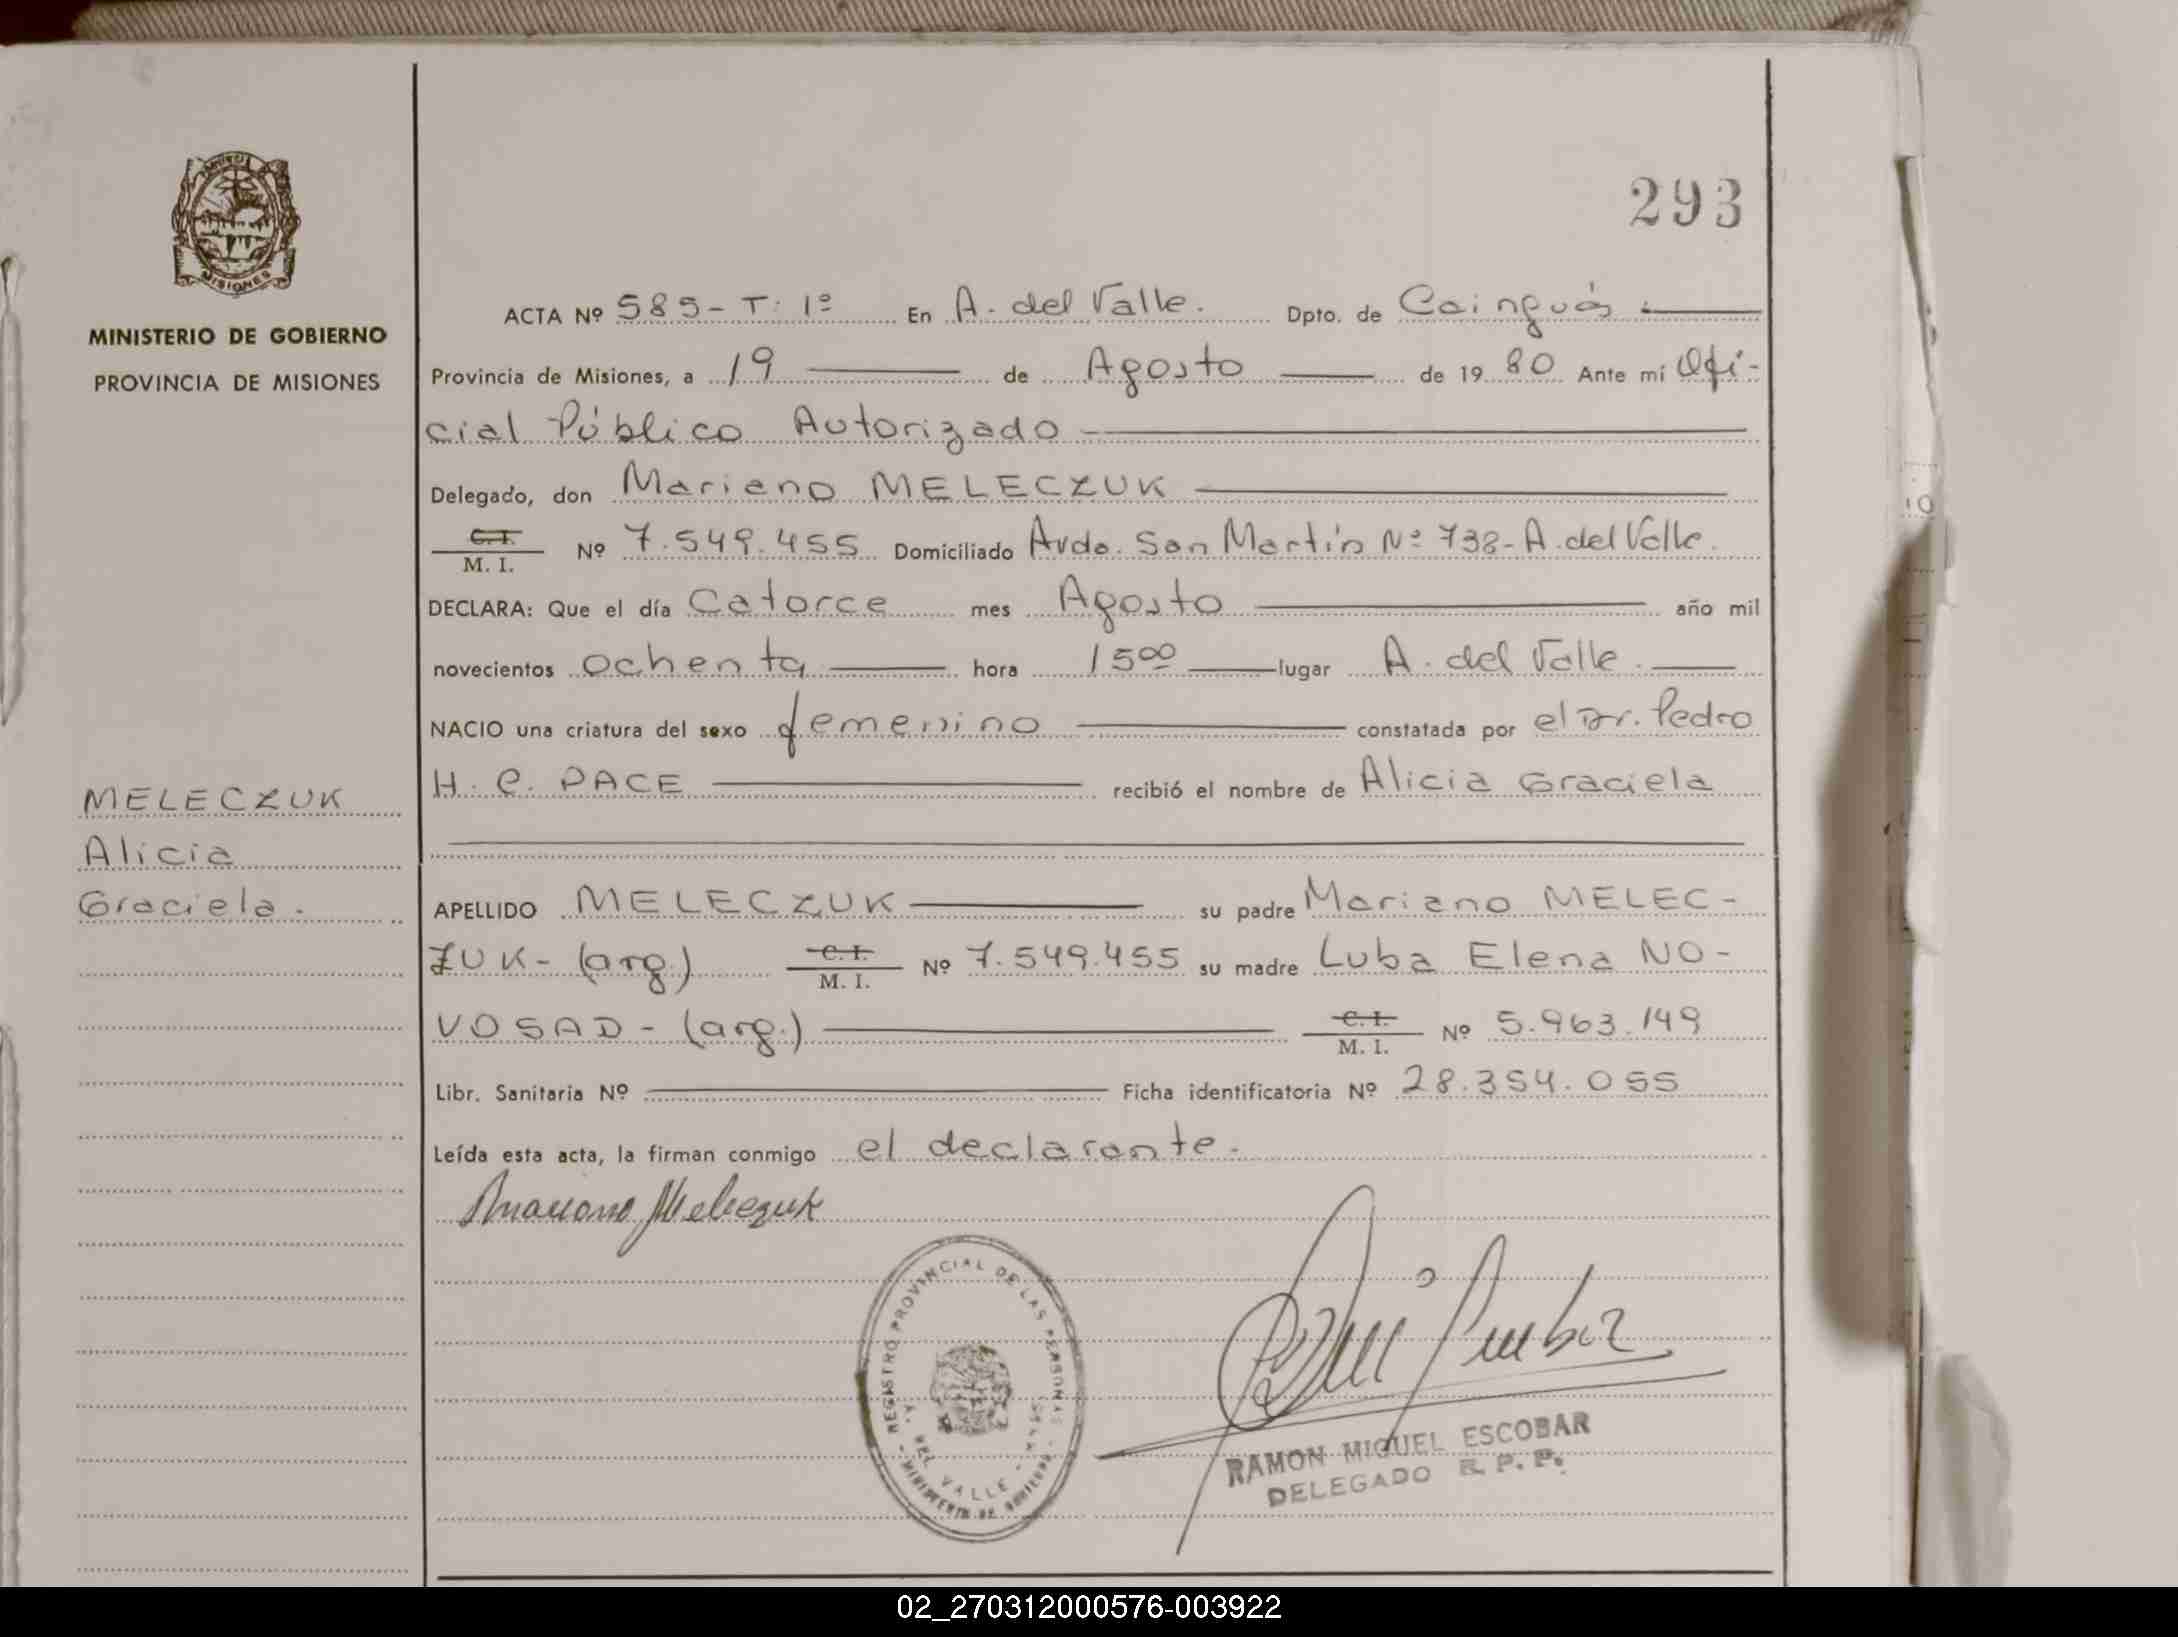 293
MINISTERIO DE GOBIERNO
PROVINCIA DE MISIONES
MELECZUK
Alicia
Graciela.
ACTA Nº 585-T: 1º En A. del Valle. Dpto. de Cainguás
Provincia de Misiones, a 19 de Agosto de 1980 Ante mí Ofi-
cial Público Autorizado
Delegado, don Mariano MELECZUK
C.I. M. I. Nº 7.549.455 Domiciliado Avda. San Martín Nº 738-A. del Valle.
DECLARA: Que el día Catorce mes Agosto año mil
novecientos ochenta hora 15⁰⁰ lugar A. del Valle.
NACIO una criatura del sexo femenino constatada por el Dr. Pedro
H. C. PACE recibió el nombre de Alicia Graciela
APELLIDO MELECZUK su padre Mariano MELEC-
ZUK- (arg.) C. I. M. I. Nº 7.549.455 su madre Luba Elena NO-
VOSAD- (arg.) C. I. M. I. Nº 5.963.149
Libr. Sanitaria Nº Ficha identificatoria Nº 28.354.055
Leída esta acta, la firman conmigo el declarante.
Mariano Meleczuk
REGISTRO PROVINCIAL DE LAS PERSONAS
A. DEL VALLE
MINISTERIO DE GOBIERNO
RAMON MIGUEL ESCOBAR
DELEGADO R. P. P.
02_270312000576-003922